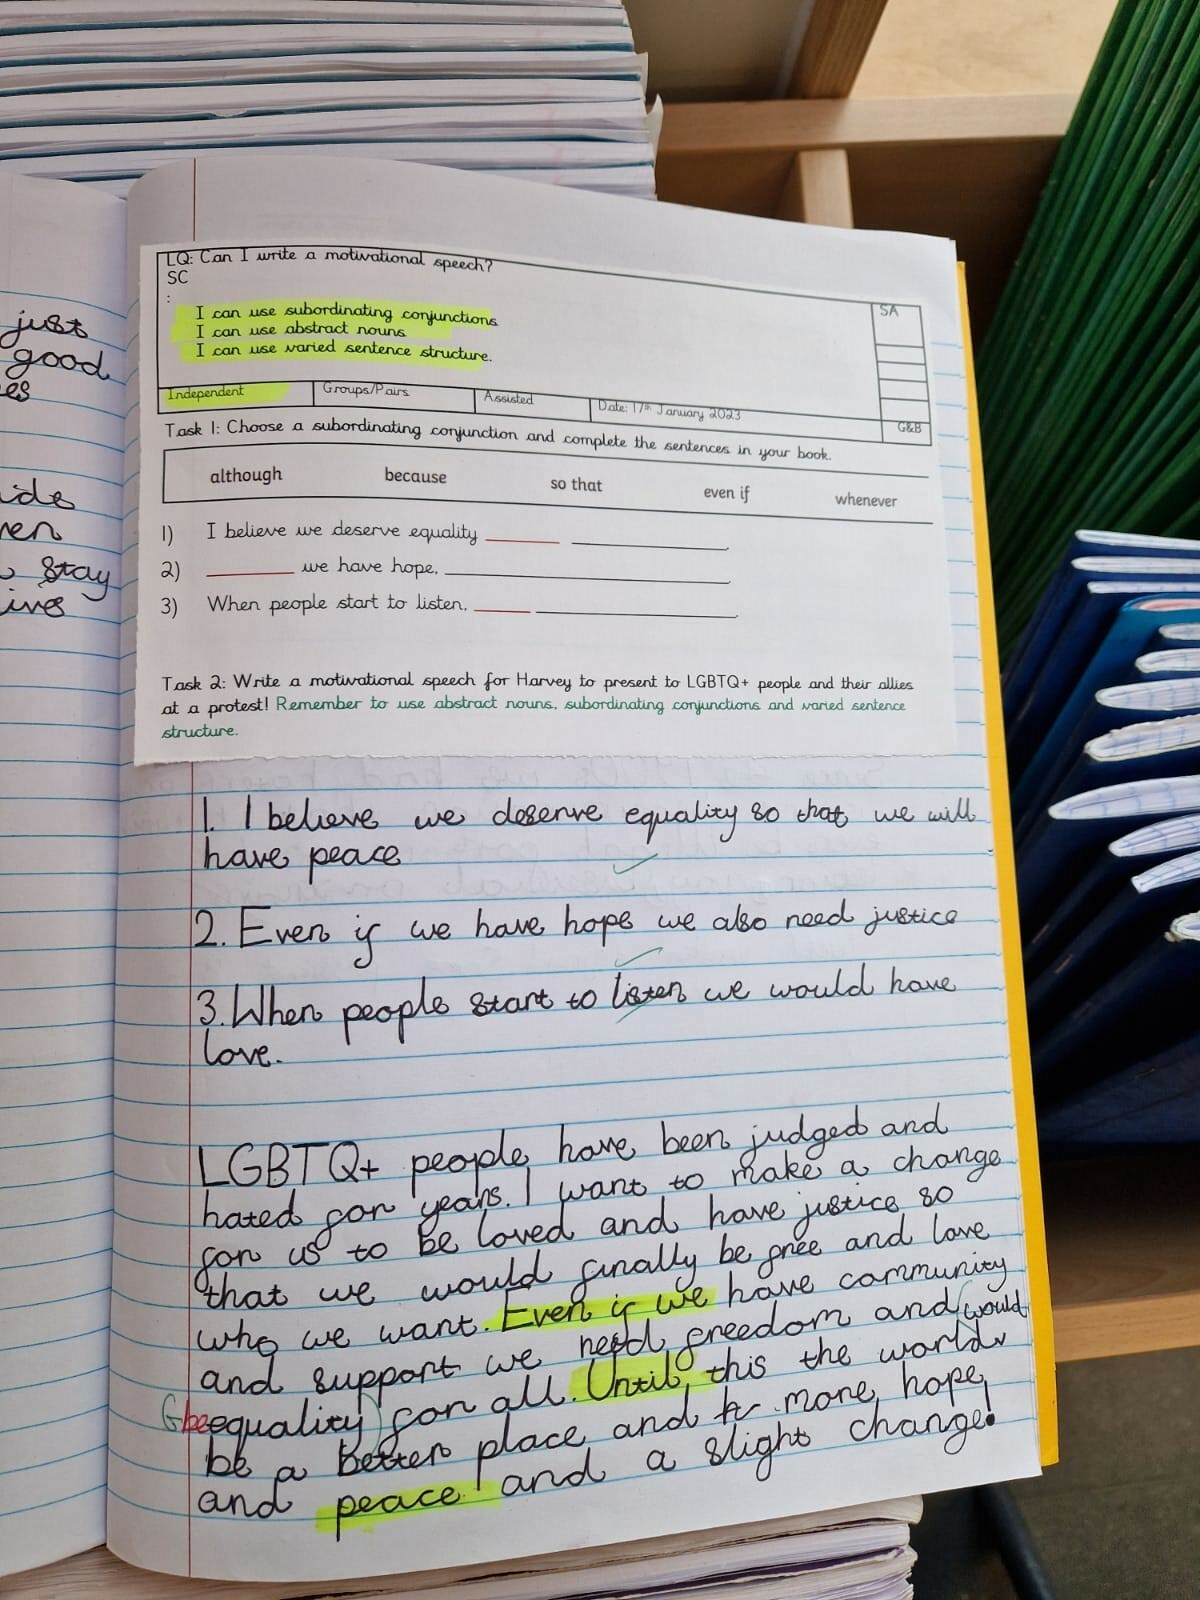 just
good
es
ide
en
stay
ives
LQ: Can I write a motivational speech?
SC
:
I can use subordinating conjunctions
I can use abstract nouns
I can use varied sentence structure.
SA
Independent
Groups/Pairs
Assisted
Date: 17th January 2023
G&B
Task 1: Choose a subordinating conjunction and complete the sentences in your book.
although because so that even if whenever
1) I believe we deserve equality ______ ____________.
2) ______ we have hope, ____________.
3) When people start to listen, ______ ____________.
Task 2: Write a motivational speech for Harvey to present to LGBTQ+ people and their allies
at a protest! Remember to use abstract nouns, subordinating conjunctions and varied sentence
structure.
1. I believe we deserve equality so that we will
have peace
2. Even if we have hope we also need justice
3. When people start to listen we would have
love.
LGBTQ+ people have been judged and
hated for years. I want to make a change
for us to be loved and have justice so
that we would finally be free and love
who we want. Even if we have community
and support we need freedom and would
equality for all. Until this the world
be a better place and more hope
and peace and a slight change!